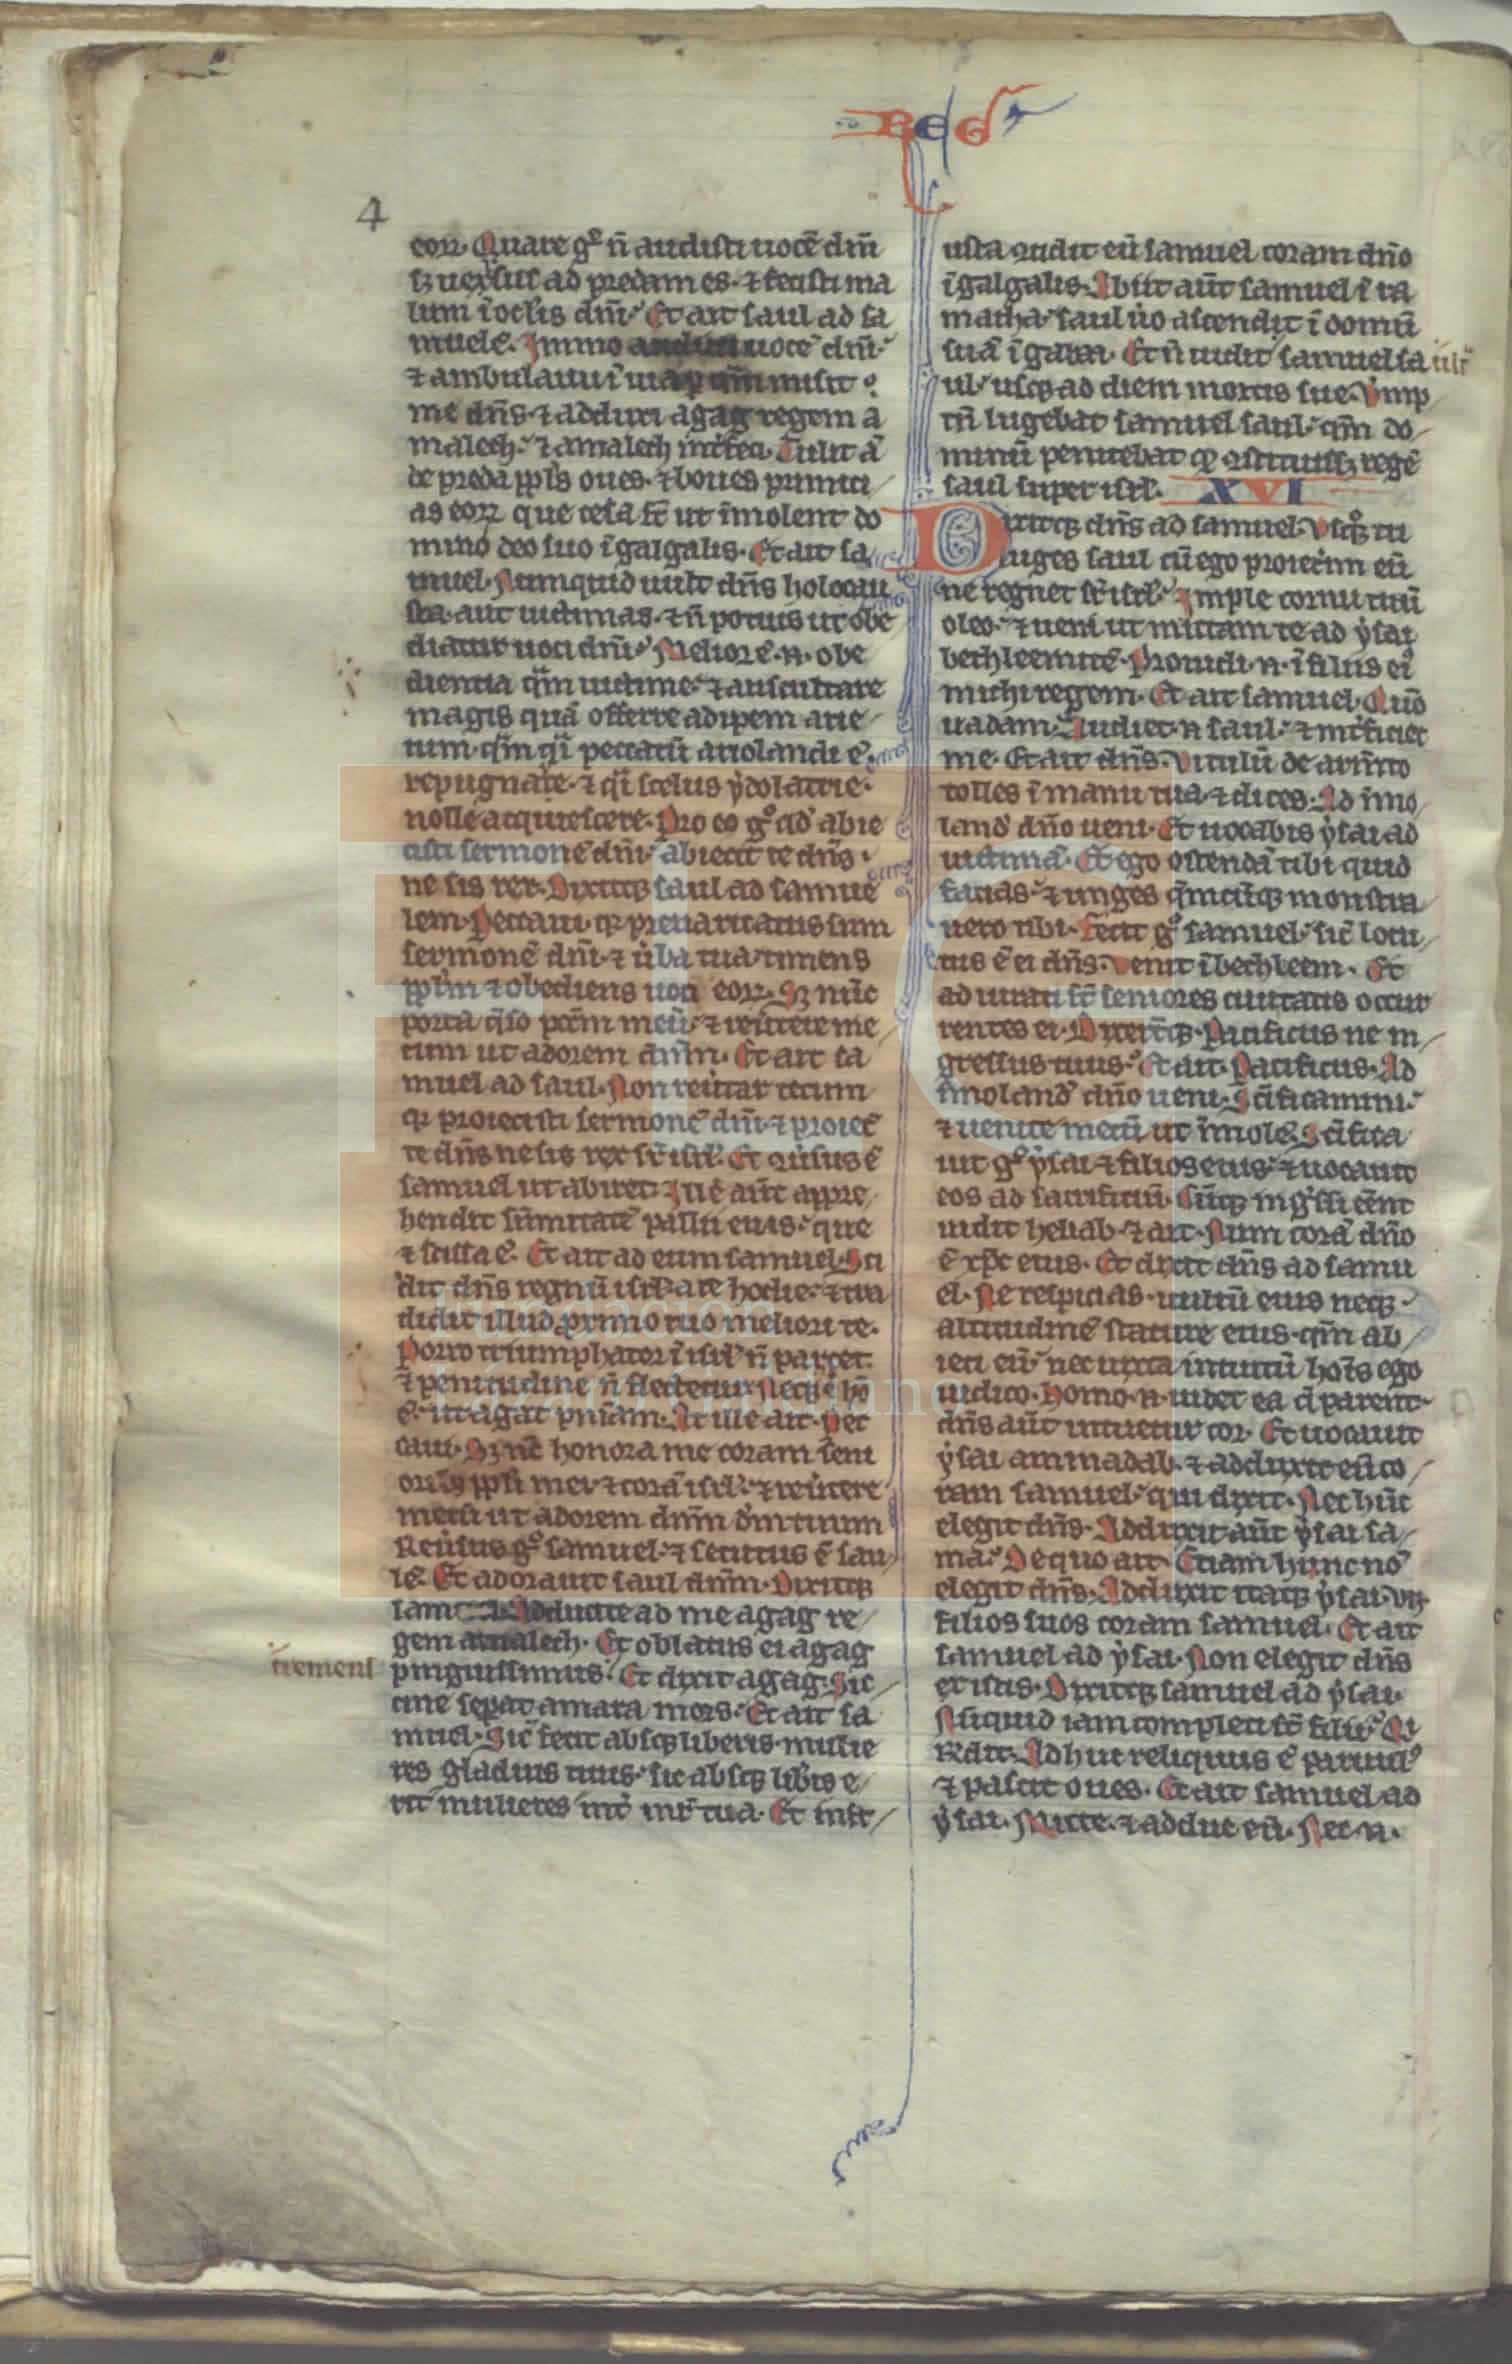 REG
4
eoꝝ. Quare gͦ n̄ audisti uocē dn̄i
sꝫ uersus ad predam es. ⁊ fecisti ma
lum ī oclīs dn̄i. Et ait saul ad sa
muelē. Immo audiui uocē dn̄i.
⁊ ambulaui ī uia ꝑ quā misit
me dn̄s. ⁊ adduxi agag regem a
malech. ⁊ amalech int̄feci. Tulit aū
de preda ppl̄s oues. ⁊ boues primici
as eoꝝ que cesa sc̄ ut īmolent do
mino deo suo ī galgalis. Et ait sa
muel. Numquid uult dn̄s holocau
sta aut uictimas. ⁊ n̄ potius ut obe
diatur uoci dn̄i. Melior ē .n. obe
dientia qm̄ uictime. ⁊ auscultare
magis quā offerre adipem arie
tum. qm̄ qi peccatū ariolandi ē
repugnare. ⁊ qi scelus ydolatrie.
nolle acquiescere. Pro eo gͦ qd̄ abie
cisti sermonē dn̄i. abiecit te dn̄s.
ne sis rex. Dixitqꝫ saul ad samue
lem. Peccaui qꝛ preuaricatus sum
sermonē dn̄i. ⁊ ūba tua. timens
ppl̄m ⁊ obediens uoci eoꝝ. Sꝫ nūc
porta q̄so pcc̄m meū. ⁊ reūtere me
cum ut adorem dn̄m. Et ait sa
muel ad saul. Non reūtar tecum
qꝛ proiecisti sermonē dn̄i. ⁊ proiec̄
te dn̄s ne sis rex sr̄ isrl̄. Et ꝯūsus ē
samuel ut abiret. Ille aūt appre
hendit sūmitatē pallii eius. que
⁊ scissa ē. Et ait ad eum samuel. Sci
dit dn̄s regnū isrl̄ a te hodie. ⁊ tra
didit illud primo tuo meliori te.
Porro triumphator ī isrl̄ n̄ parcet.
⁊ penitudine n̄ flectetur. Neqꝫ ē hō
ē. ut agat pn̄iam. At ille ait. Pec
caui. Sꝫ nc̄ honora me coram seni
oribꝫ ppl̄i mei. ⁊ corā isrl̄. ⁊ reūtere
mecū ut adorem dn̄m dm̄ tuum
Reūsus gͦ samuel. ⁊ secutus ē sau
lē. Et adorauit saul dn̄m. Dixitqꝫ
sam Adducite ad me agag re
gem amalech. Et oblatus ei agag
tremens
pinguissimus. Et dixit agag. Sic
cine sepat amara mors. Et ait sa
muel. Sic̄ fecit absqꝫ liberis mulie
res gladius tuus. sic absqꝫ lib̄is e
rit mulieres int̄ mr̄ tua. Et inft
usta ꝯcidit eū samuel coram dn̄o
ī galgalis. Abiit aūt samuel ī ra
matha. saul ūo ascendit ī domū
suā ī gabaa. Et n̄ uidit samuel sa
ul usqꝫ ad diem mortis sue. Ūmp
tn̄ lugebat samuel saul. qm̄ do
minū penitebat qꝫ ꝯstituissꝫ regē
saul super isrl̄.
XVI
Dixitqꝫ dn̄s ad samuel. Usqꝫ quo tu
luges saul cū ego proiecerim eū
ne regnet sr̄ isrl̄. Imple cornu tuū
oleo. ⁊ ueni ut mittam te ad ysai
bethleemitē. Prouidi .n. ī filiis eiꝰ
michi regem. Et ait samuel. Quō
uadam. Audiet .n. saul. ⁊ int̄ficiet
me. Et ait dn̄s. Vitulū de arm̄to
tolles ī manu tua. ⁊ dices. Ad īmo
land̄ dn̄o ueni. Et uocabis ysai ad
uictimā. Et ego ostendā tibi quid
facias. ⁊ unges qm̄cūqꝫ monstra
uero tibi. Fecit gͦ samuel. sic̄ locu
tus ē ei dn̄s. Venit ī bethleem. Et
admirati sc̄ seniores ciuitatis occur
rentes ei. Dixer̄tqꝫ. Pacificus ne in
gressus tuus. Et ait. Pacificus. Ad
īmoland̄ dn̄o ueni. Sc̄ificamini.
⁊ uenite mecū ut īmolē. Sc̄ifica
uit gͦ ysai ⁊ filios eius. ⁊ uocauit
eos ad sacrificiū. Cūqꝫ ingr̄ssi eēnt
uidit heliab. ⁊ ait. Num corā dn̄o
ē xp̄c eius. Et dixit dn̄s ad samu
el. Ne respicias uultū eius neqꝫ
altitudinē stature eius. qm̄ ab
ieci eū. nec iuxta intuitū hoīs ego
iudico. Homo .n. uidet ea q̄ parent.
dn̄s aūt intuetur cor. Et uocauit
ysai aminadab. ⁊ adduxit eū co
ram samuel. qui dixit. Nec hūc
elegit dn̄s. Adduxit aūt ysai sa
ma. De quo ait. Etiam hunc nō
elegit dn̄s. Adduxit itaqꝫ ysai. vii.
filios suos coram samuel. Et ait
samuel ad ysai. Non elegit dn̄s
ex istis. Dixitqꝫ samuel ad ysai.
Numquid iam completi sc̄ filii. Qi
Rn̄dit. Adhuc reliquus ē paruulꝰ
⁊ pascit oues. Et ait samuel ad
ysai. Mitte. ⁊ adduc eū. Nec .n.
FLG
Fundación
Lázaro Galdiano